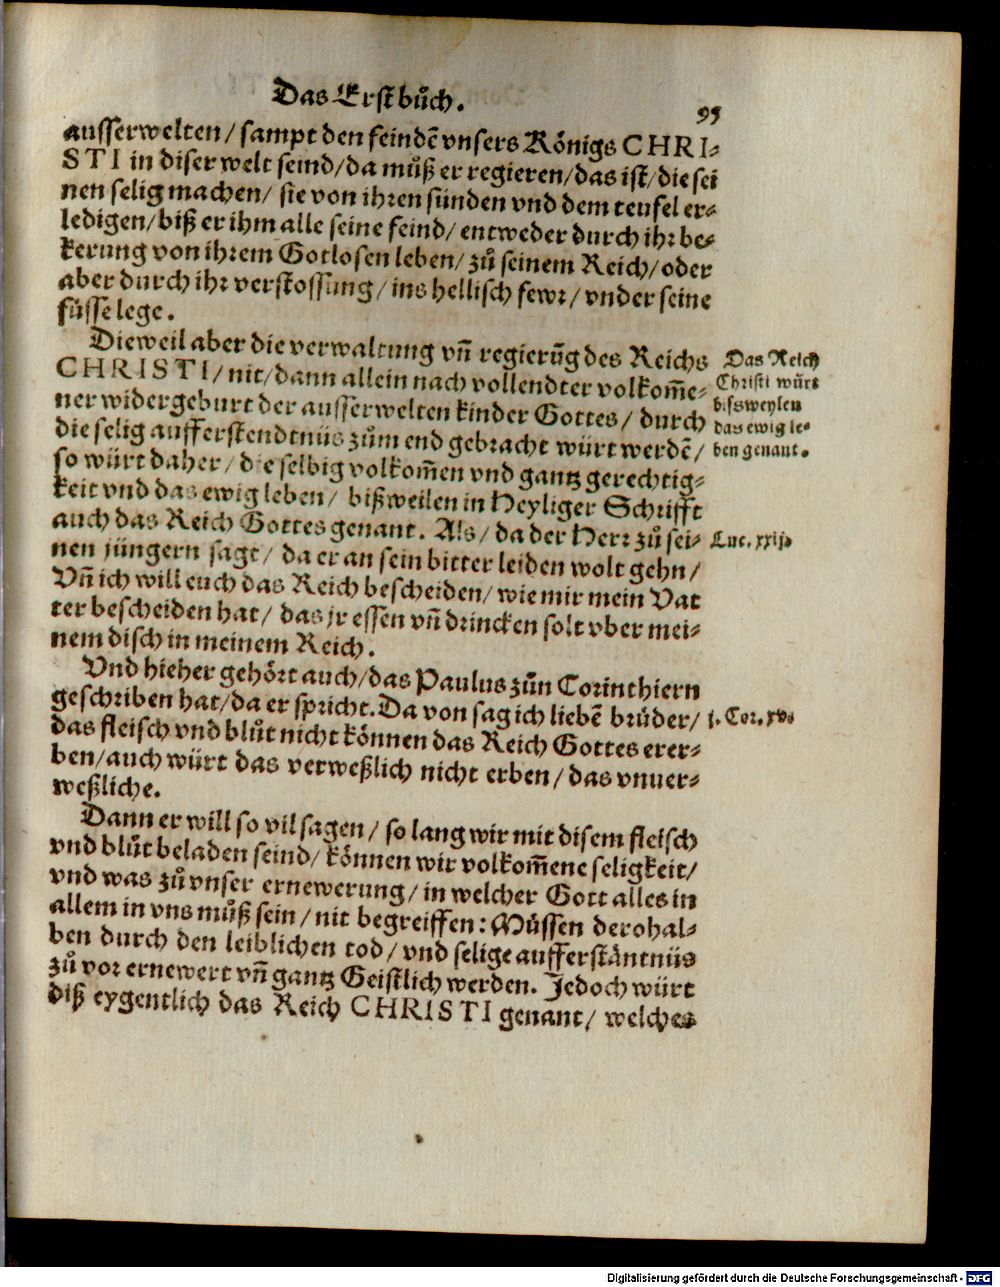 Das Erst buͦch.
95
ausserwelten/ sampt den feindē vnsers Königs CHRI-
STI in diser welt seind/ da muͦß er regieren/ das ist/ die sei
nen selig machen/ sie von ihren sünden vnd dem teufel er-
ledigen/ biß er ihm alle seine feind/ entweder durch ihr be-
kerung von ihrem Gotlosen leben/ zuͦ seinem Reich/ oder
aber durch ihr verstossung/ ins hellisch fewr/ vnder seine
füsse lege.
Dieweil aber die verwaltung vñ regierūg des Reichs
CHRISTI/ nit/ dann allein nach vollendter volkom̄e-
ner widergeburt der ausserwelten kinder Gottes/ durch
die selig aufferstendtnüs zuͦm end gebracht würt werdē/
so würt daher/ die selbig volkom̄en vnd gantz gerechtig-
keit vnd das ewig leben/ bißweilen in Heyliger Schrifft
auch das Reich Gottes genant. Als/ da der Herr zuͦ sei-
nen jüngern sagt/ da er an sein bitter leiden wolt gehn/
Vñ ich will euch das Reich bescheiden/ wie mir mein Vat
ter bescheiden hat/ das jr essen vñ drincken solt vber mei-
nem disch in meinem Reich.
Das Reich
Christi würt
bisweylen
das ewig le-
ben genant.
Luc. xxij.
Vnd hieher gehört auch/ das Paulus zuͦn Corinthiern
geschriben hat/ da er spricht. Da von sag ich liebē bruͤder/
das fleisch vnd bluͦt nicht können das Reich Gottes erer-
ben/ auch würt das verweßlich nicht erben/ das vnuer-
weßliche.
j. Cor. xv.
Dann er will so vil sagen/ so lang wir mit disem fleisch
vnd bluͦt beladen seind/ können wir volkom̄ene seligkeit/
vnd was zuͦ vnser ernewerung/ in welcher Gott alles in
allem in vns muͦß sein/ nit begreiffen: Müssen derohal-
ben durch den leiblichen tod/ vnd selige aufferstäntnüs
zuͦ vor ernewert vñ gantz Geistlich werden. Jedoch würt
diß eygentlich das Reich CHRISTI genant/ welches
Digitalisierung gefördert durch die Deutsche Forschungsgemeinschaft - DFG